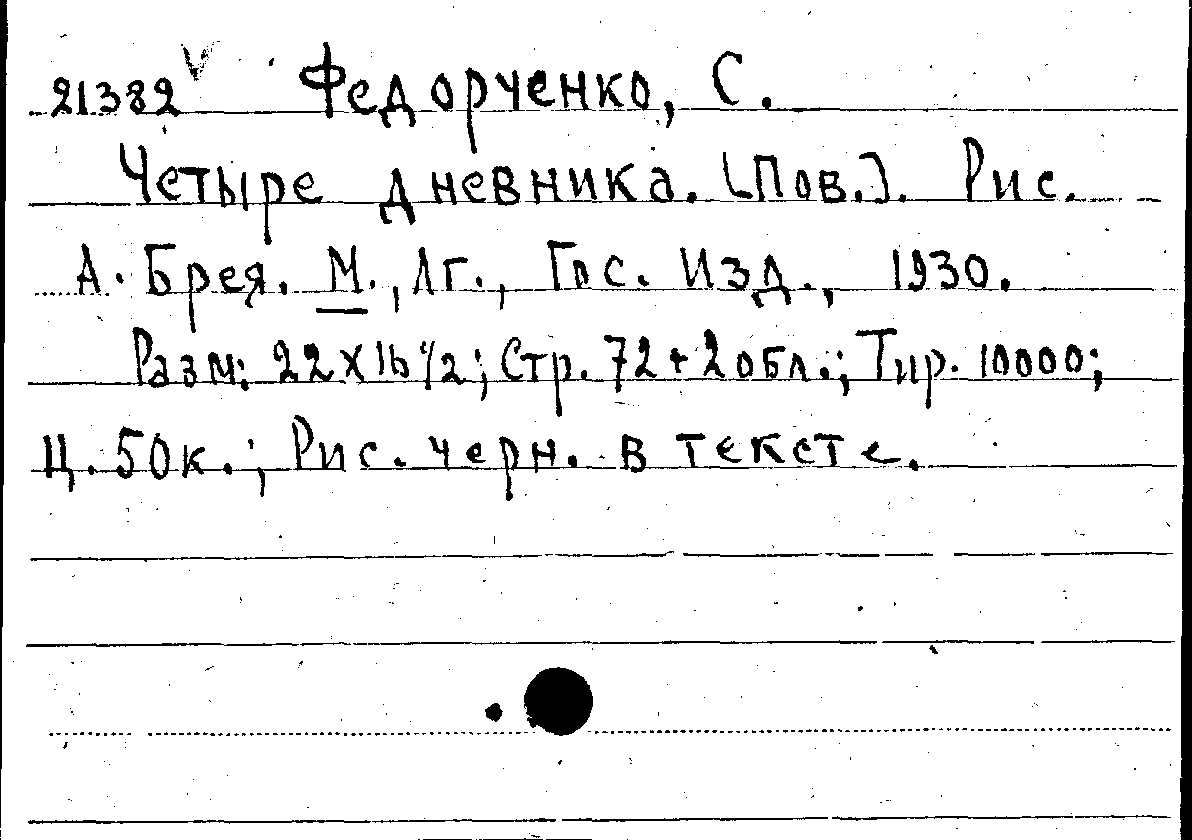 21382 V Федорченко, С.
Четыре дневника. [Пов.]. Рис.
А. Брея. М., Лг., Гос. Изд., 1930.
Разм: 22х16 1/2; Стр. 72+2 обл.; Тир. 10000;
Ц. 50к.; Рис. черн. в тексте.